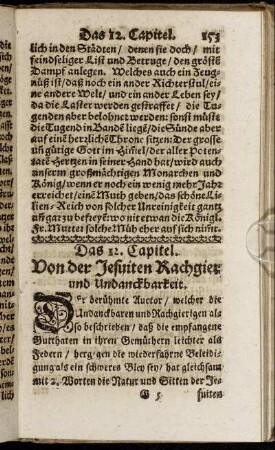 Das 12. Capitel. 153
lich in den Städten / denen sie doch / mit
feindseliger List und Betruge / den gröste
Dampf anlegen. Welches auch ein Zeug-
nüß ist / daß noch ein ander Richterstul / ei-
ne andere Welt / und ein ander Leben sey /
da die Laster werden gestraffet / die Tu-
genden aber belohnet werden: sonst müste
die Tugend in Bandē liegē / die Sünde aber
auf einē herzlichē Throne sitzen: Der grosse
uñ gütige Gott im Him̃el / der aller Poten-
taten Hertzen in seiner Hand hat / wird auch
unserm großmächtigen Monarchen und
König / wenn er noch ein wenig mehr Jahr
erreichet / eine Muth geben / das schöne Lili-
en-Reich von solcher Unreinigkeit gantz
uñ gar zu befreyē: wo nit etwan die Königl.
Fr. Mutter solche Müh eher auf sich nim̃t.
Das 12. Capitel.
Von der Jesuiten Rachgier
und Undanckbarkeit.
Der berühmte Auctor / welcher die
Undanckbaren und Rachgierigen al-
so beschrieben / daß die empfangene
Gutthaten in ihren Gemüthern leichter als
Federn / hergegen die wiederfahrne Beleidi-
gung als ein schweres Bley sey / hat gleichsam
mit 2. Worten die Natur und Sitten der Je-
G 5 suiten